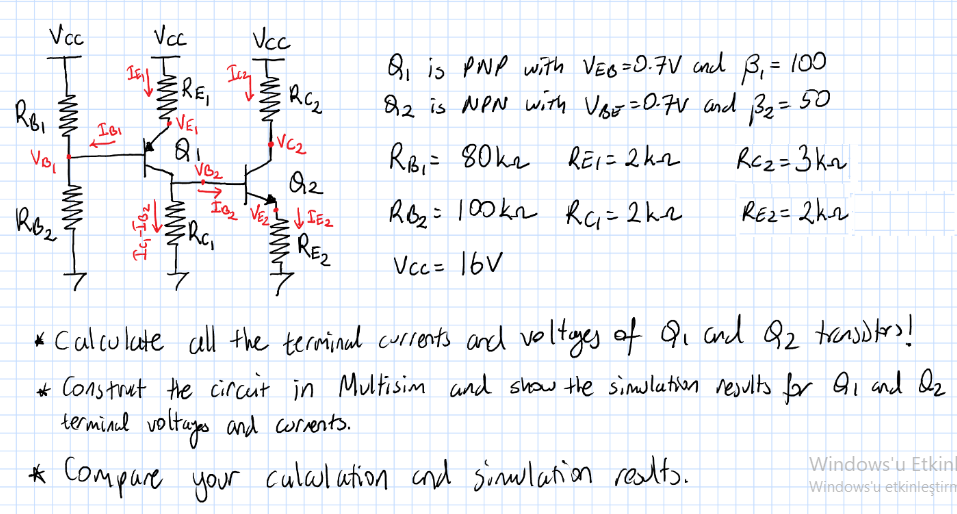 Vcc Vcc Vcc
IE1 RE1 IC2 RC2
RB1 IB1 VE1 Q1 VC2
VB1 VB2 Q2
RB2 IC1-IB2 IB2 VE2 IE2
RC1 RE2
Q1 is PNP with VEB=0.7V and β1=100
Q2 is NPN with VBE=0.7V and β2=50
RB1= 80kΩ RE1=2kΩ RC2=3kΩ
RB2=100kΩ RC1=2kΩ RE2=2kΩ
Vcc= 16V
* Calculate all the terminal currents and voltages of Q1 and Q2 transistors!
* Construt the circuit in Multisim and show the simulation results for Q1 and Q2
terminal voltages and currents.
* Compare your calculation and simulation results.
Windows'u Etkinl
Windows'u etkinleştirm